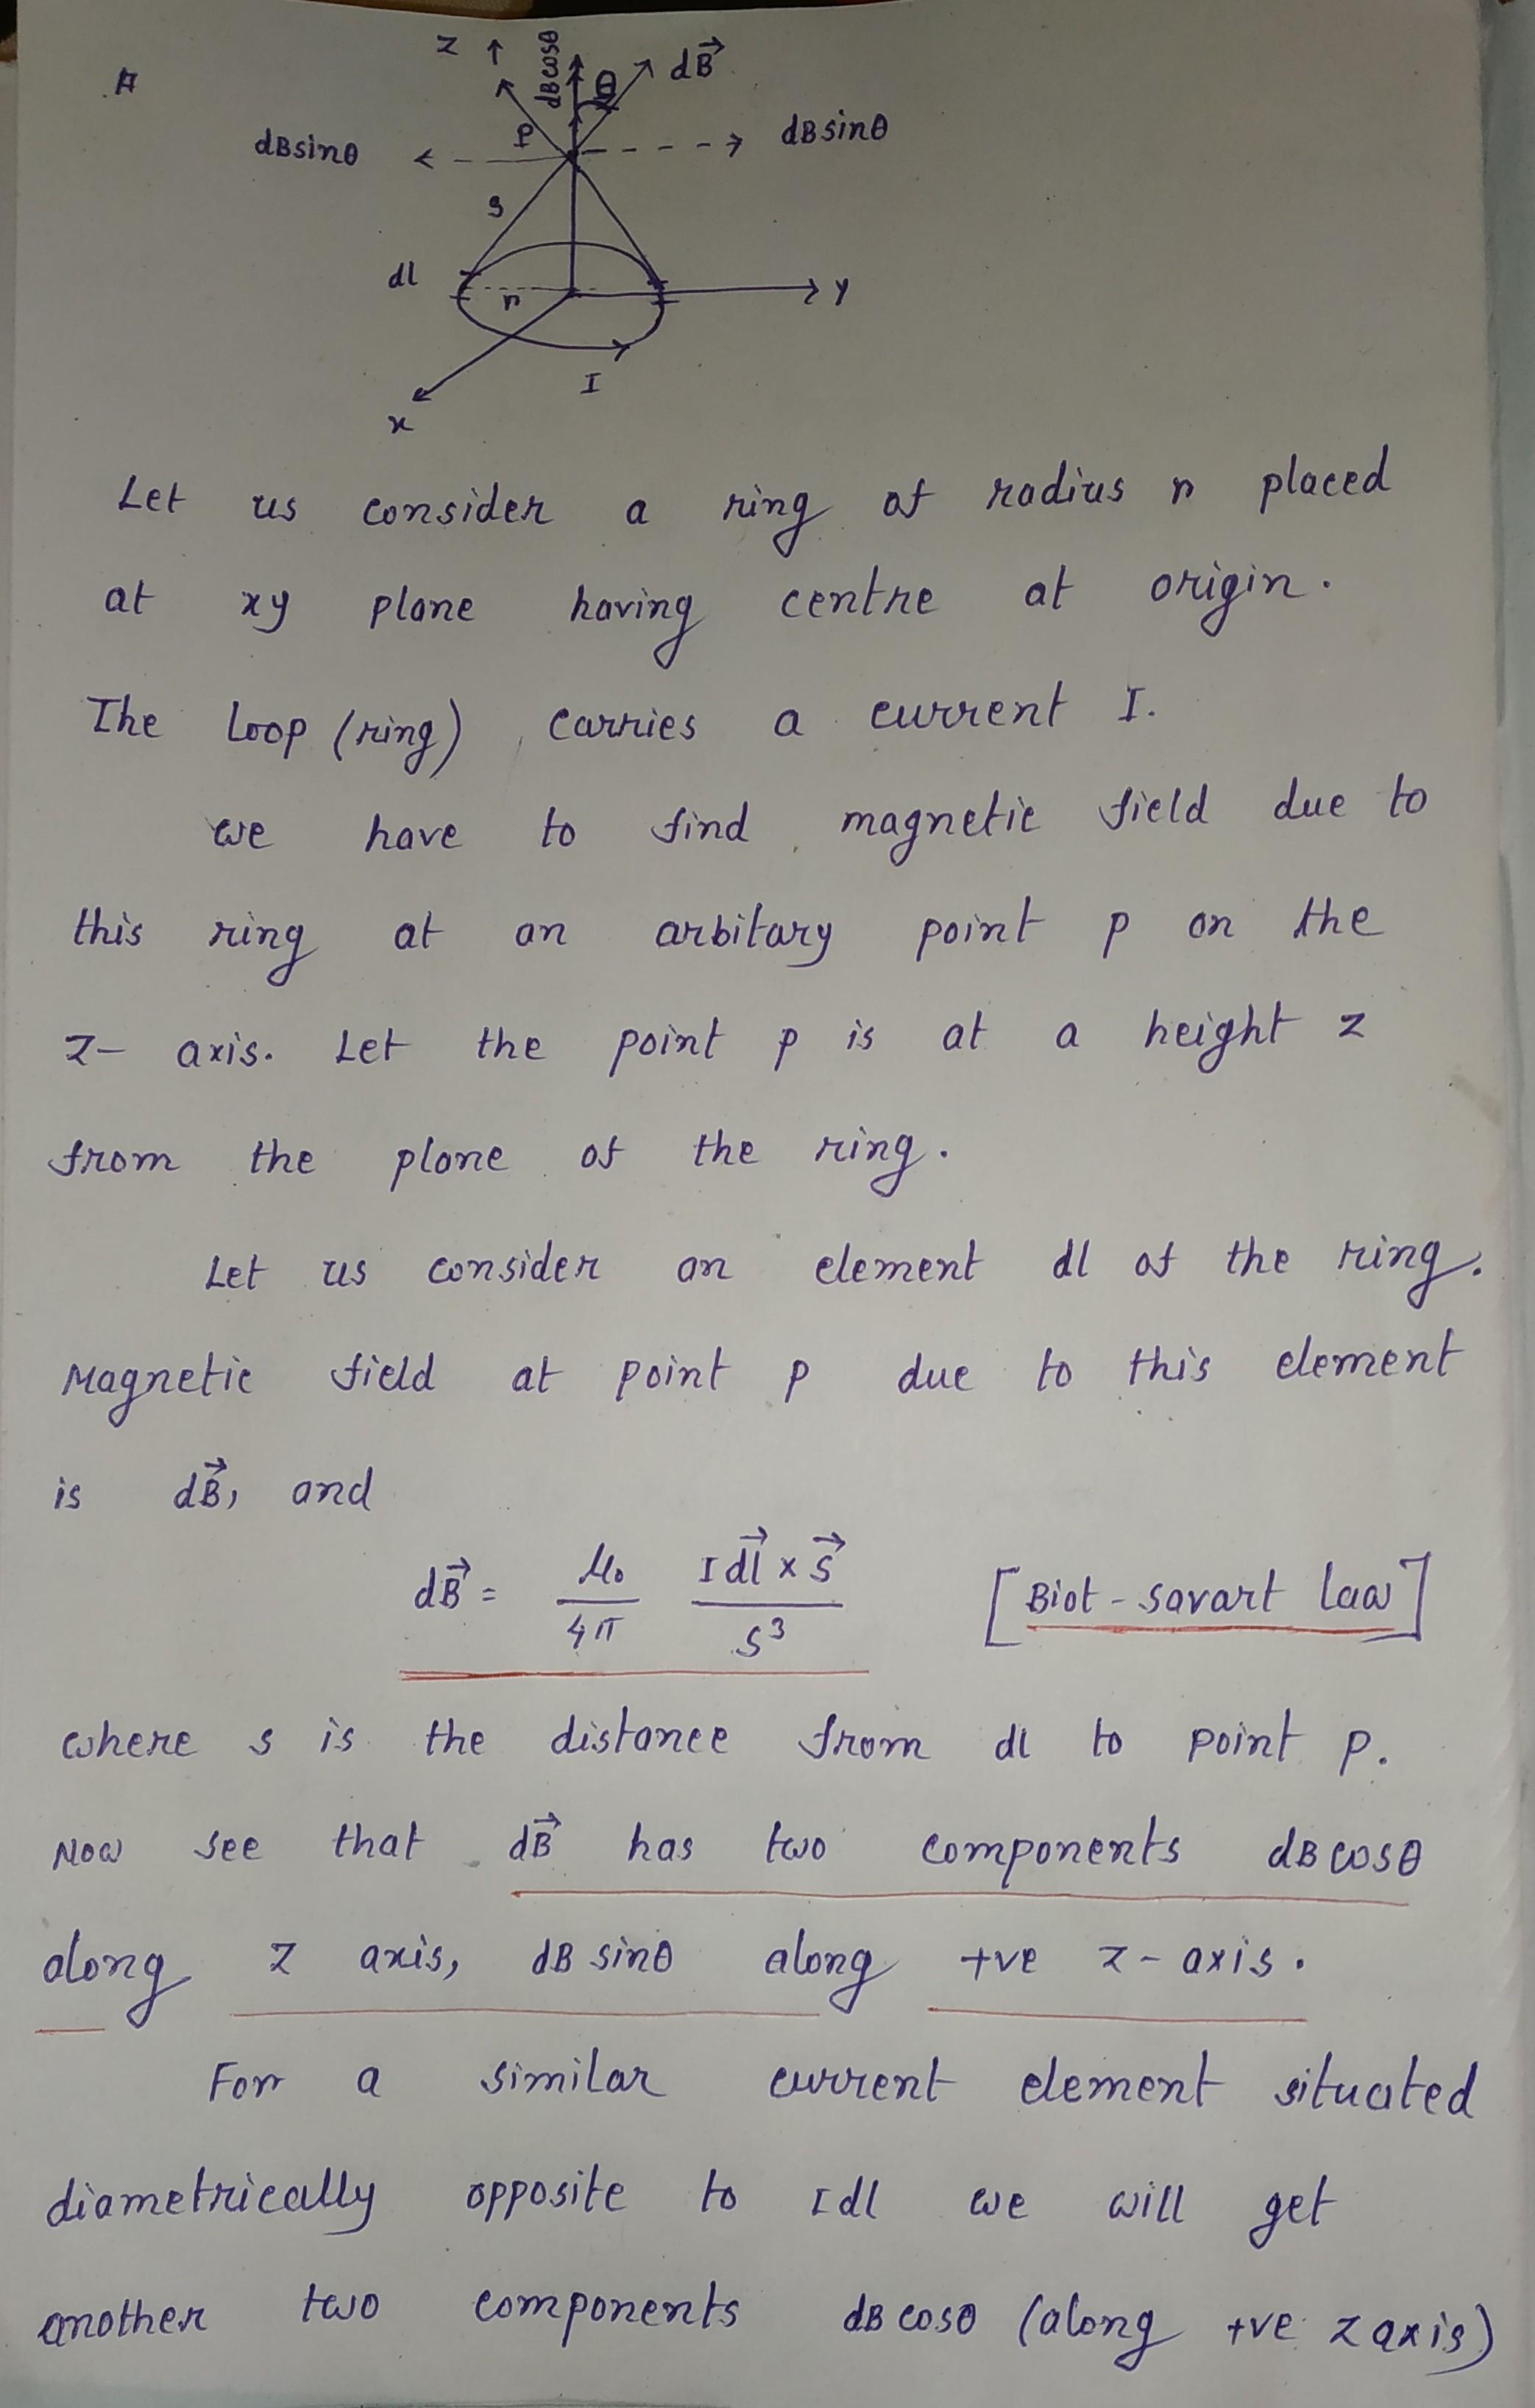 Z
dBcosθ
θ
dB⃗
dBsinθ
P
dBsinθ
s
dl
r
y
I
x
Let us consider a ring of radius r placed
at xy plane having centre at origin.
The Loop (ring) carries a current I.
we have to find magnetic field due to
this ring at an arbitary point p on the
z- axis. Let the point p is at a height z
from the plane of the ring.
Let us consider an element dl of the ring.
Magnetic field at point p due to this element
is dB⃗, and
dB⃗ = μ₀/4π Idl⃗ × s⃗/s³ [Biot-savart law]
where s is the distance from dl to point p.
Now see that dB⃗ has two components dBcosθ
along z axis, dBsinθ along +ve z-axis.
For a similar current element situated
diametrically opposite to Idl we will get
another two components dBcosθ (along +ve z axis)